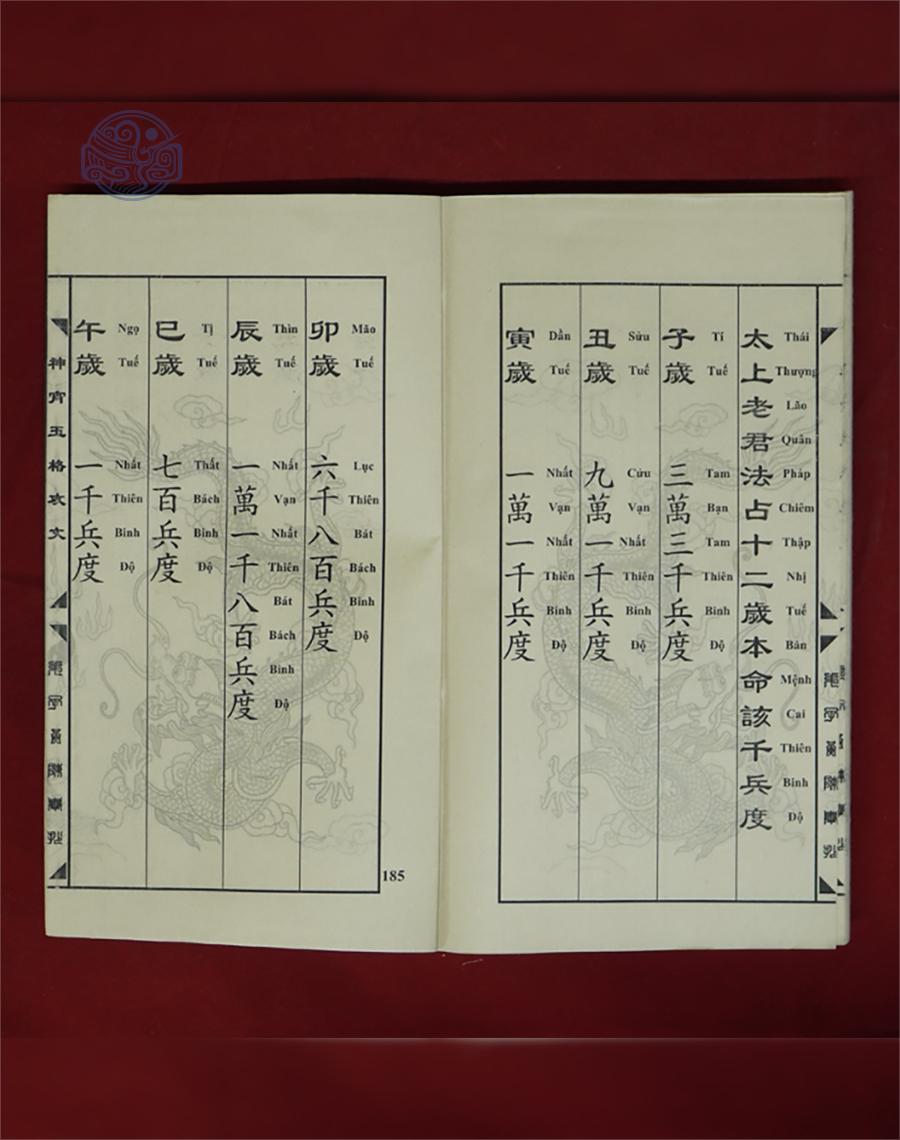 太上老君法占十二歲本命該千兵度
Thái Thượng Lão Quân Pháp Chiêm Thập Nhị Tuế Bản Mệnh Cai Thiên Binh Độ
子歲 三萬三千兵度
Tí Tuế Tam Bạn Tam Thiên Binh Độ
丑歲 九萬一千兵度
Sửu Tuế Cửu Vạn Nhất Thiên Binh Độ
寅歲 一萬一千兵度
Dần Tuế Nhất Vạn Nhất Thiên Binh Độ
卯歲 六千八百兵度
Mão Tuế Lục Thiên Bát Bách Binh Độ
辰歲 一萬一千八百兵度
Thìn Tuế Nhất Vạn Nhất Thiên Bát Bách Binh Độ
巳歲 七百兵度
Tị Tuế Thất Bách Binh Độ
午歲 一千兵度
Ngọ Tuế Nhất Thiên Binh Độ
神宵玉格攻文
185